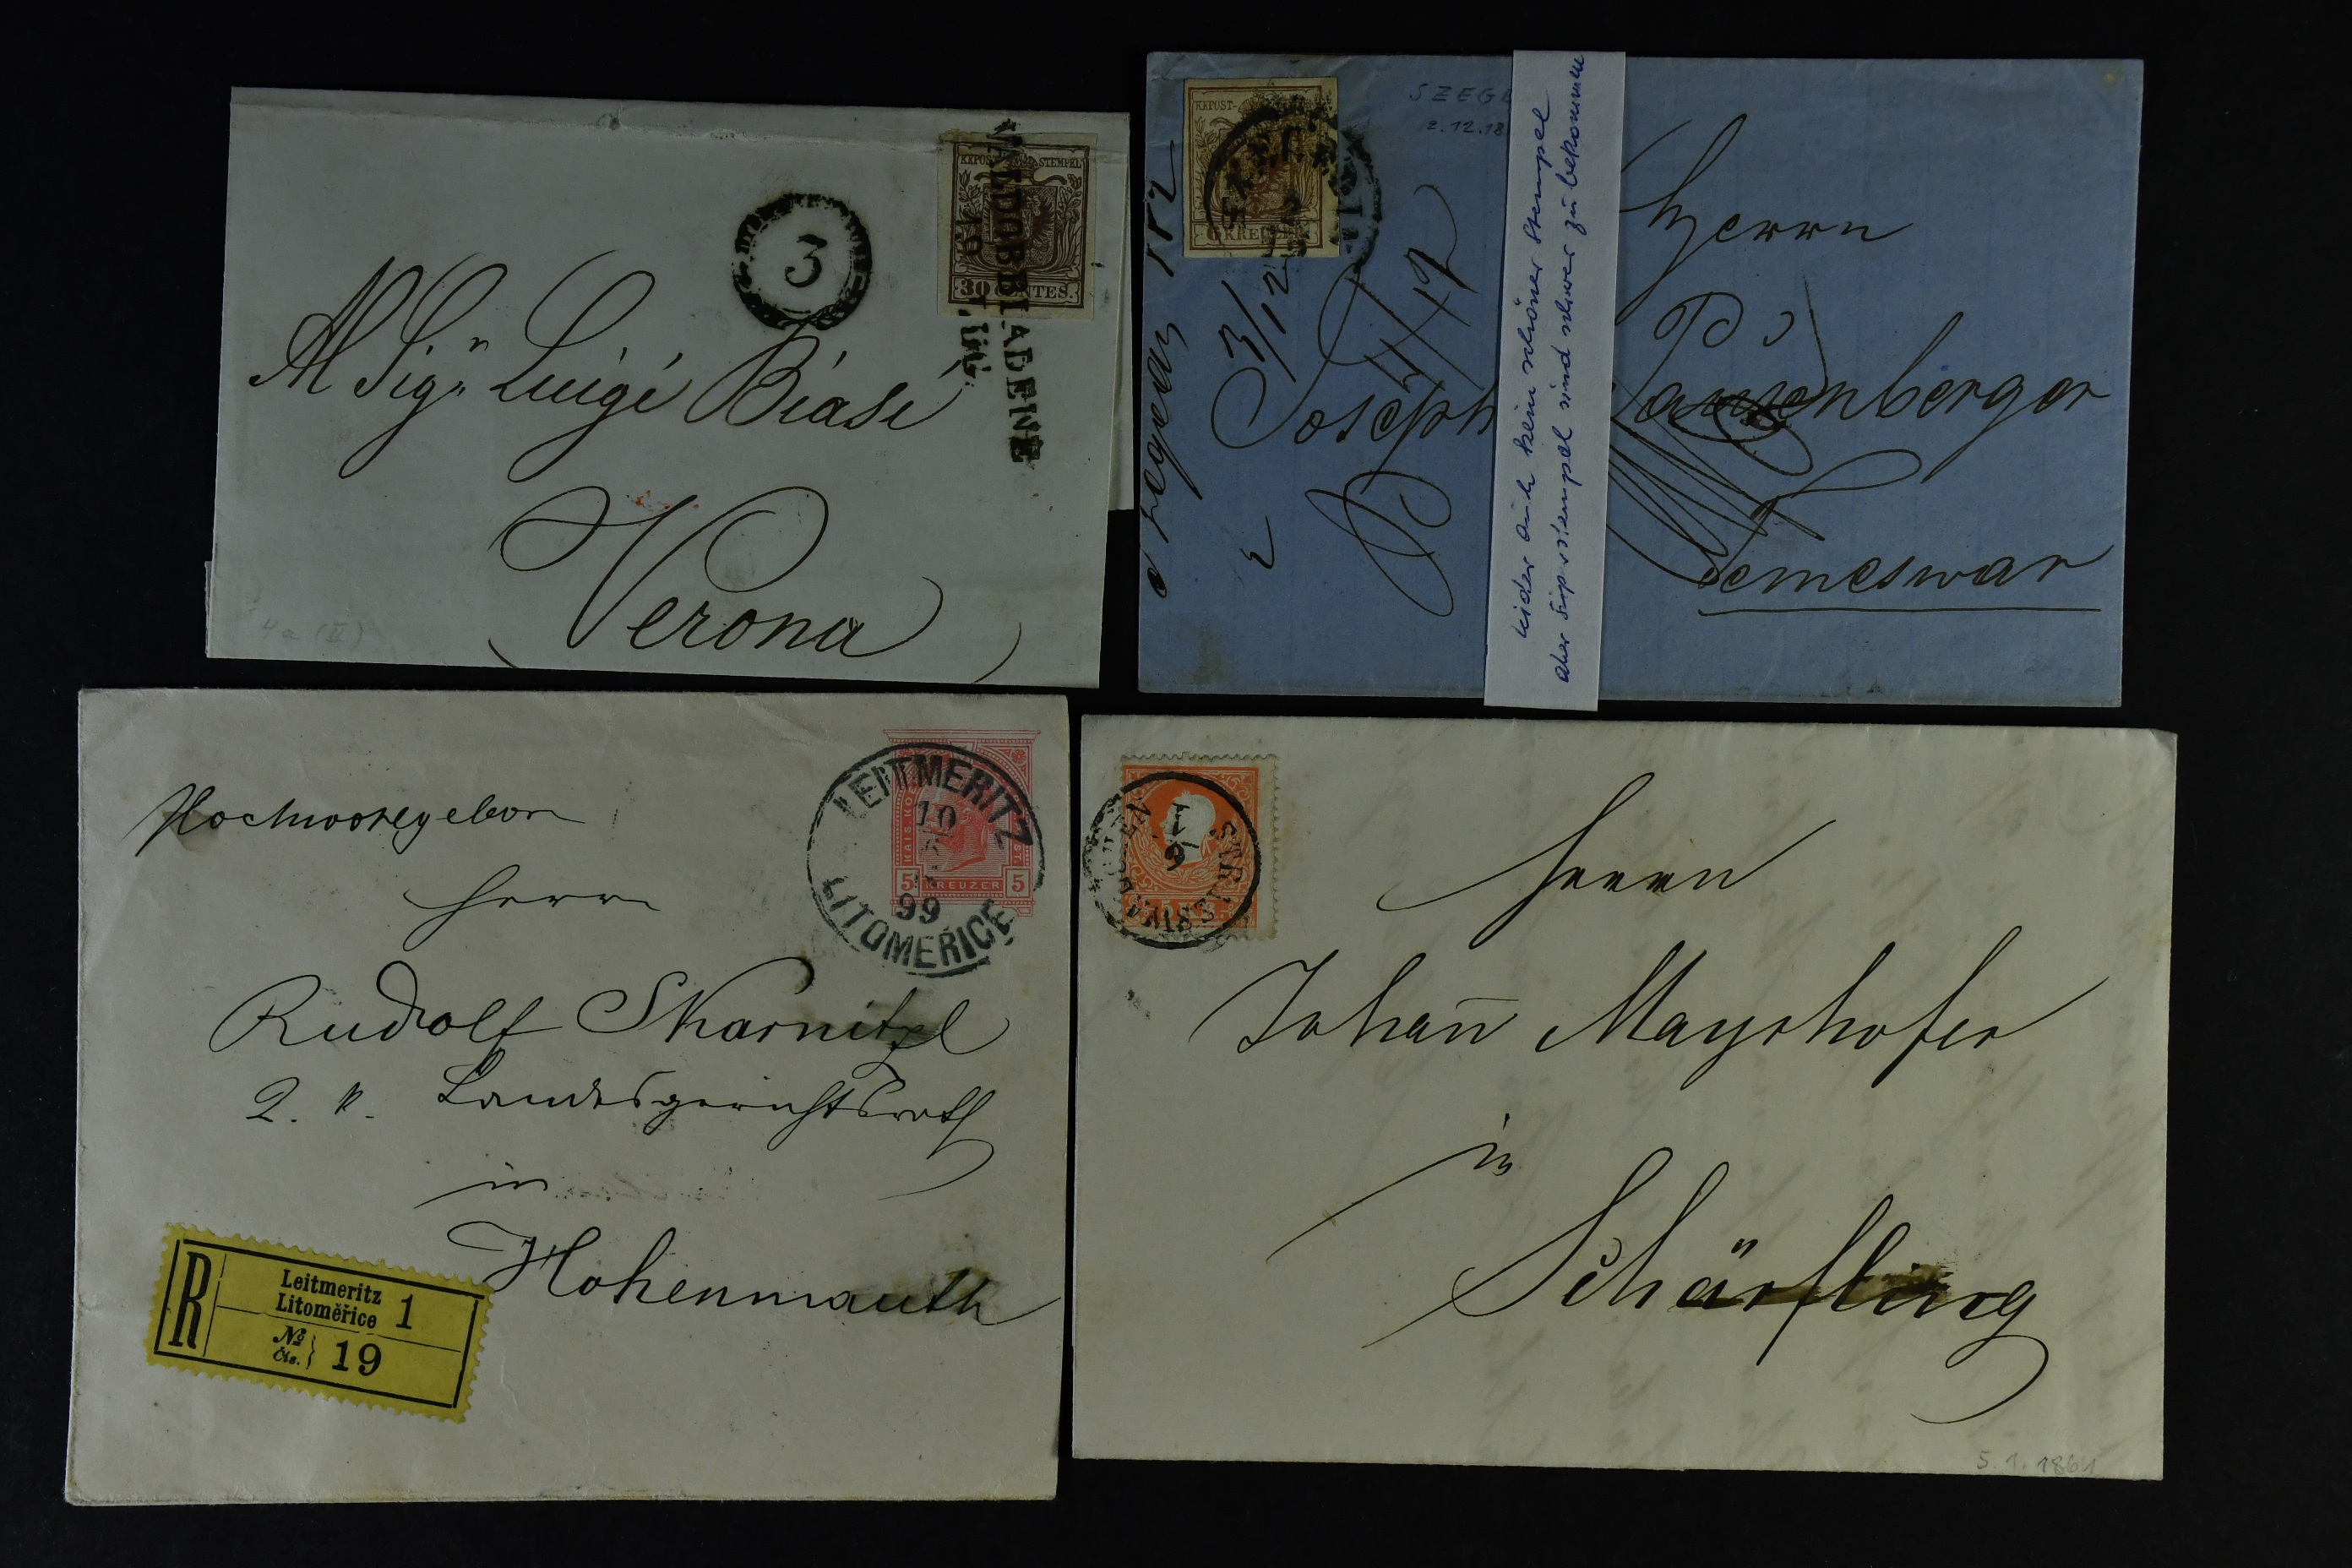 KKPOST-STEMPEL
30 CENTES.
VALDOBBIADENE
19
3
Al Sig.n Luigi Biasi
Verona
4a (II)
KKPOST-
6 KREUZER
SZEGE
2.12.18
Herrn
Joseph
Temeswar
3/12
leider auch kein schöner Stempel
aber sind schwer zu bekommen
Herrn
Rudolf Skarnitzl
k. k. Landesgerichtsrath
in
Hohenmauth
LEITMERITZ
10
99
LITOMĚŘICE
KAIS. KOE
5 KREUZER 5
R
Leitmeritz
Litoměřice 1
№
čis. 19
STRASSWALCHEN
Herrn
Johan̄ Mayrhofer
in
Schärfling
5.1.1861